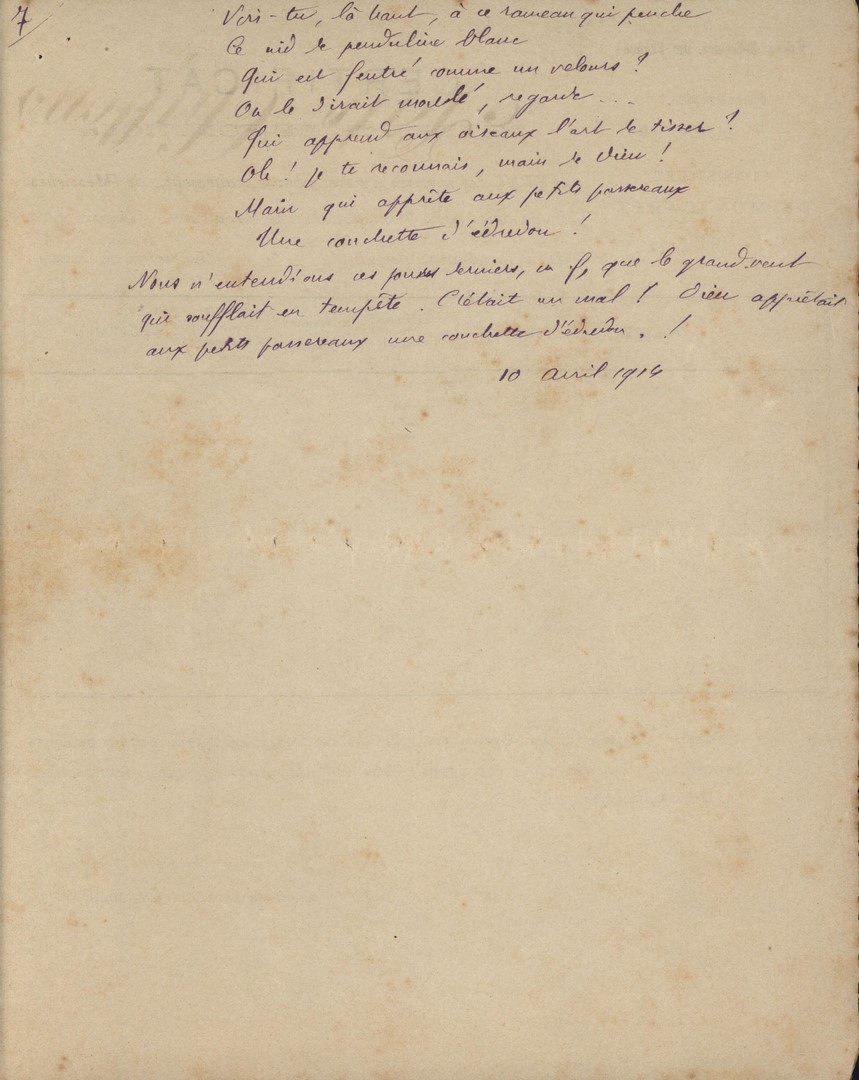 7
Vois-tu, là haut, à ce rameau qui penche
Ce nid de penduline blanc
Qui est feutré comme un velours ?
On le dirait moulé, regarde ...
Qui apprend aux oiseaux l'art de tisser ?
Oh ! je te reconnais, main de Dieu !
Main qui apprête aux petits passereaux
Une couchette d'édredon !
Nous n'entendions ces jours derniers, que le grand vent
qui soufflait en tempête. C'était un mal ! Dieu apprêtait
aux petits passereaux une couchette d'édredon. !
10 avril 1914